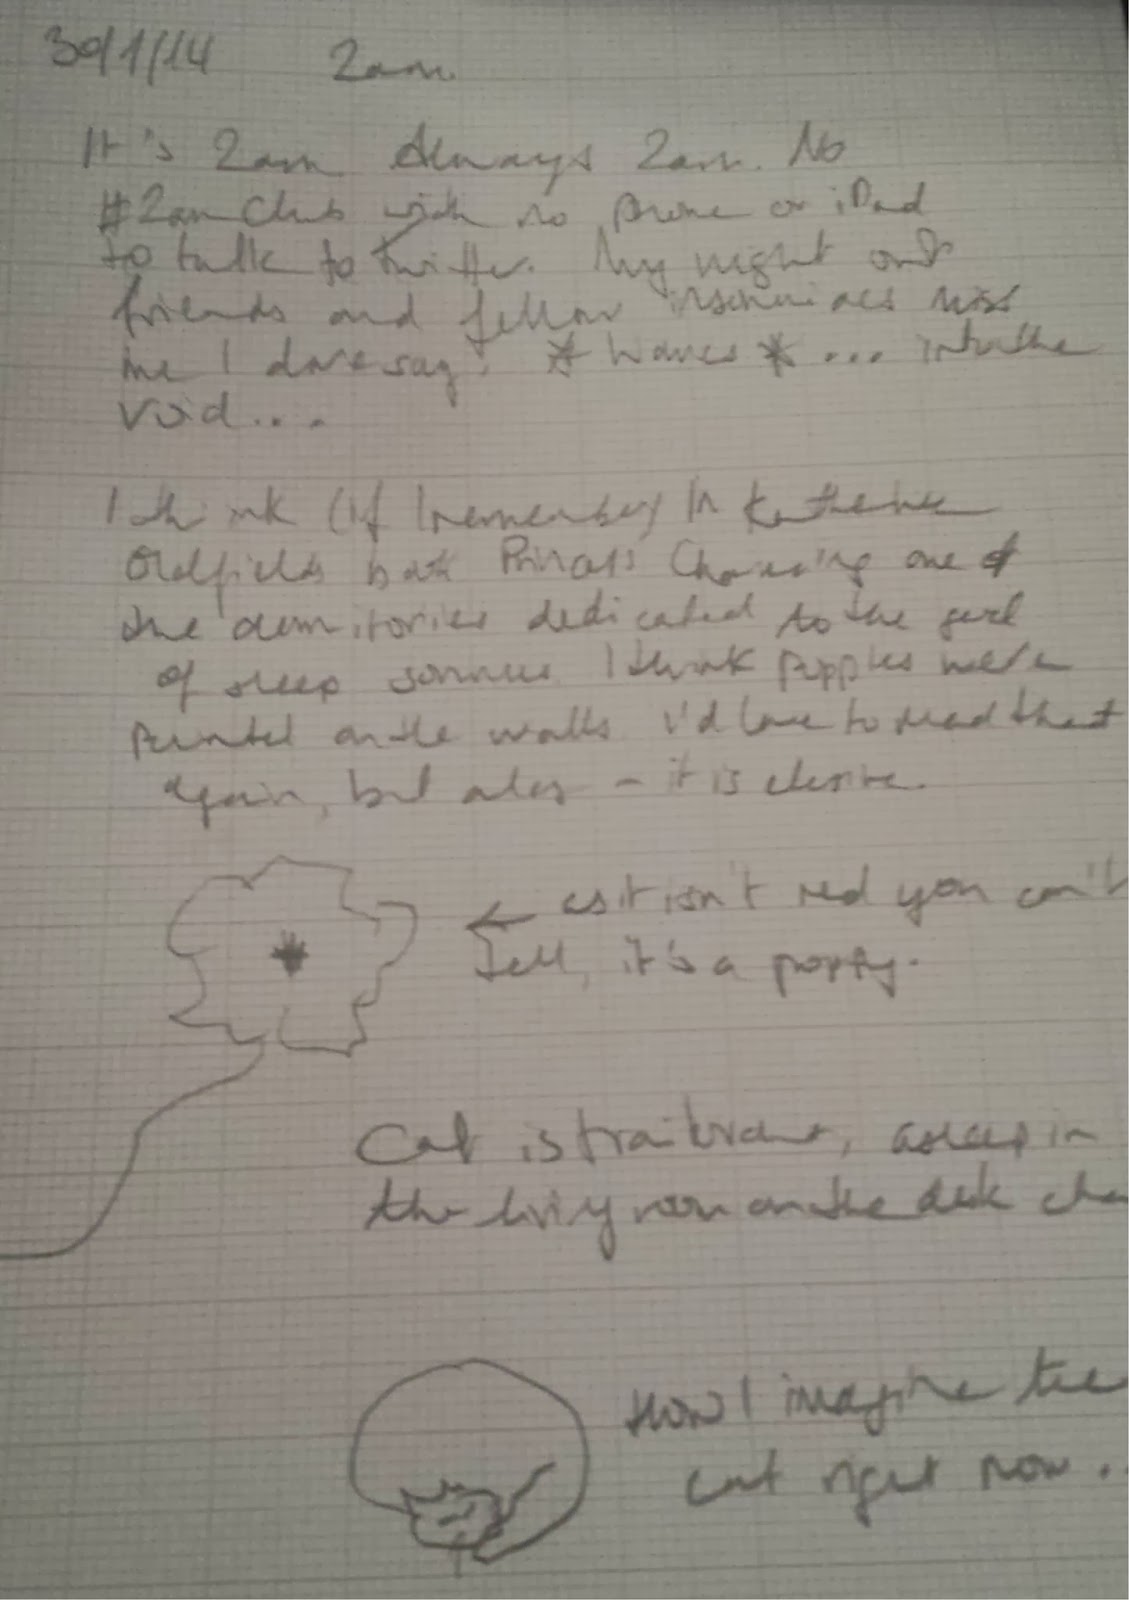 30/1/14 2am.
It's 2am Always 2am. No
#2amClub with no phone or iPad
to talk to twitter. My night owl
friends and fellow insomniacs miss
me I daresay! * waves * ... into the
void...
I think (if I remember) In Katherine
Oldfields book Charming one of
the dormitories dedicated to the
of sleep somnus I think poppies were
painted on the walls I'd love to read that
again, but alas - it is elusive.
← as it isn't red you can't
tell, it's a poppy.
Cat is , asleep in
the living room on the desk
How I imagine the
cat right now..